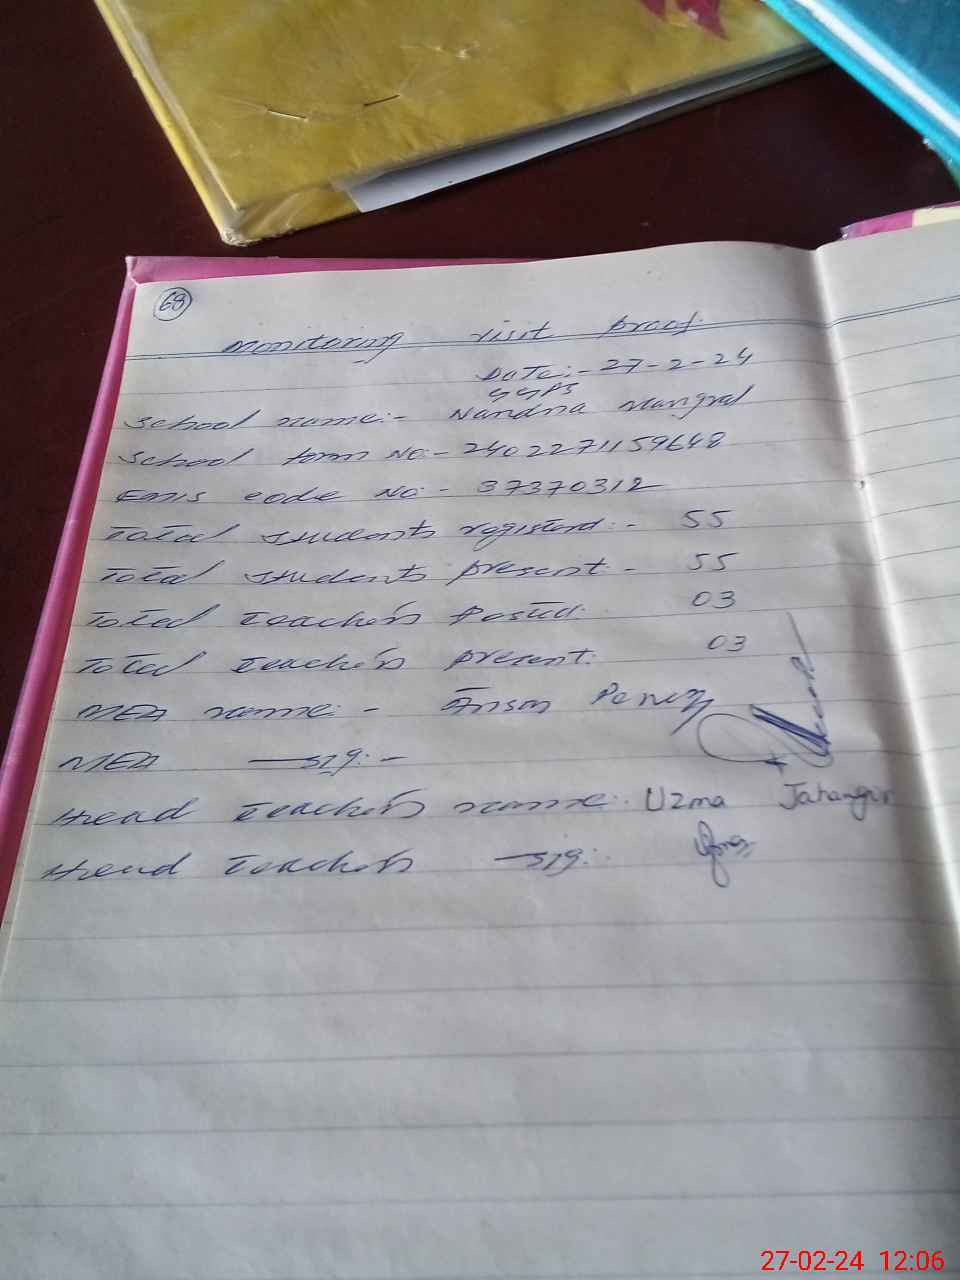 68
Monitoring visit proof
Date:- 27-2-24
GGPS
School name:- Nandna Mangral
School form No:- 2402271159648
Emis code No:- 37370312
Total students registerd:- 55
Total students present:- 55
Total teachers Posted: 03
Total teachers present: 03
MEA name:-
MEA sig:-
Head teachers name:. Uzma Jahangir
Head teachers sig:.
27-02-24 12:06